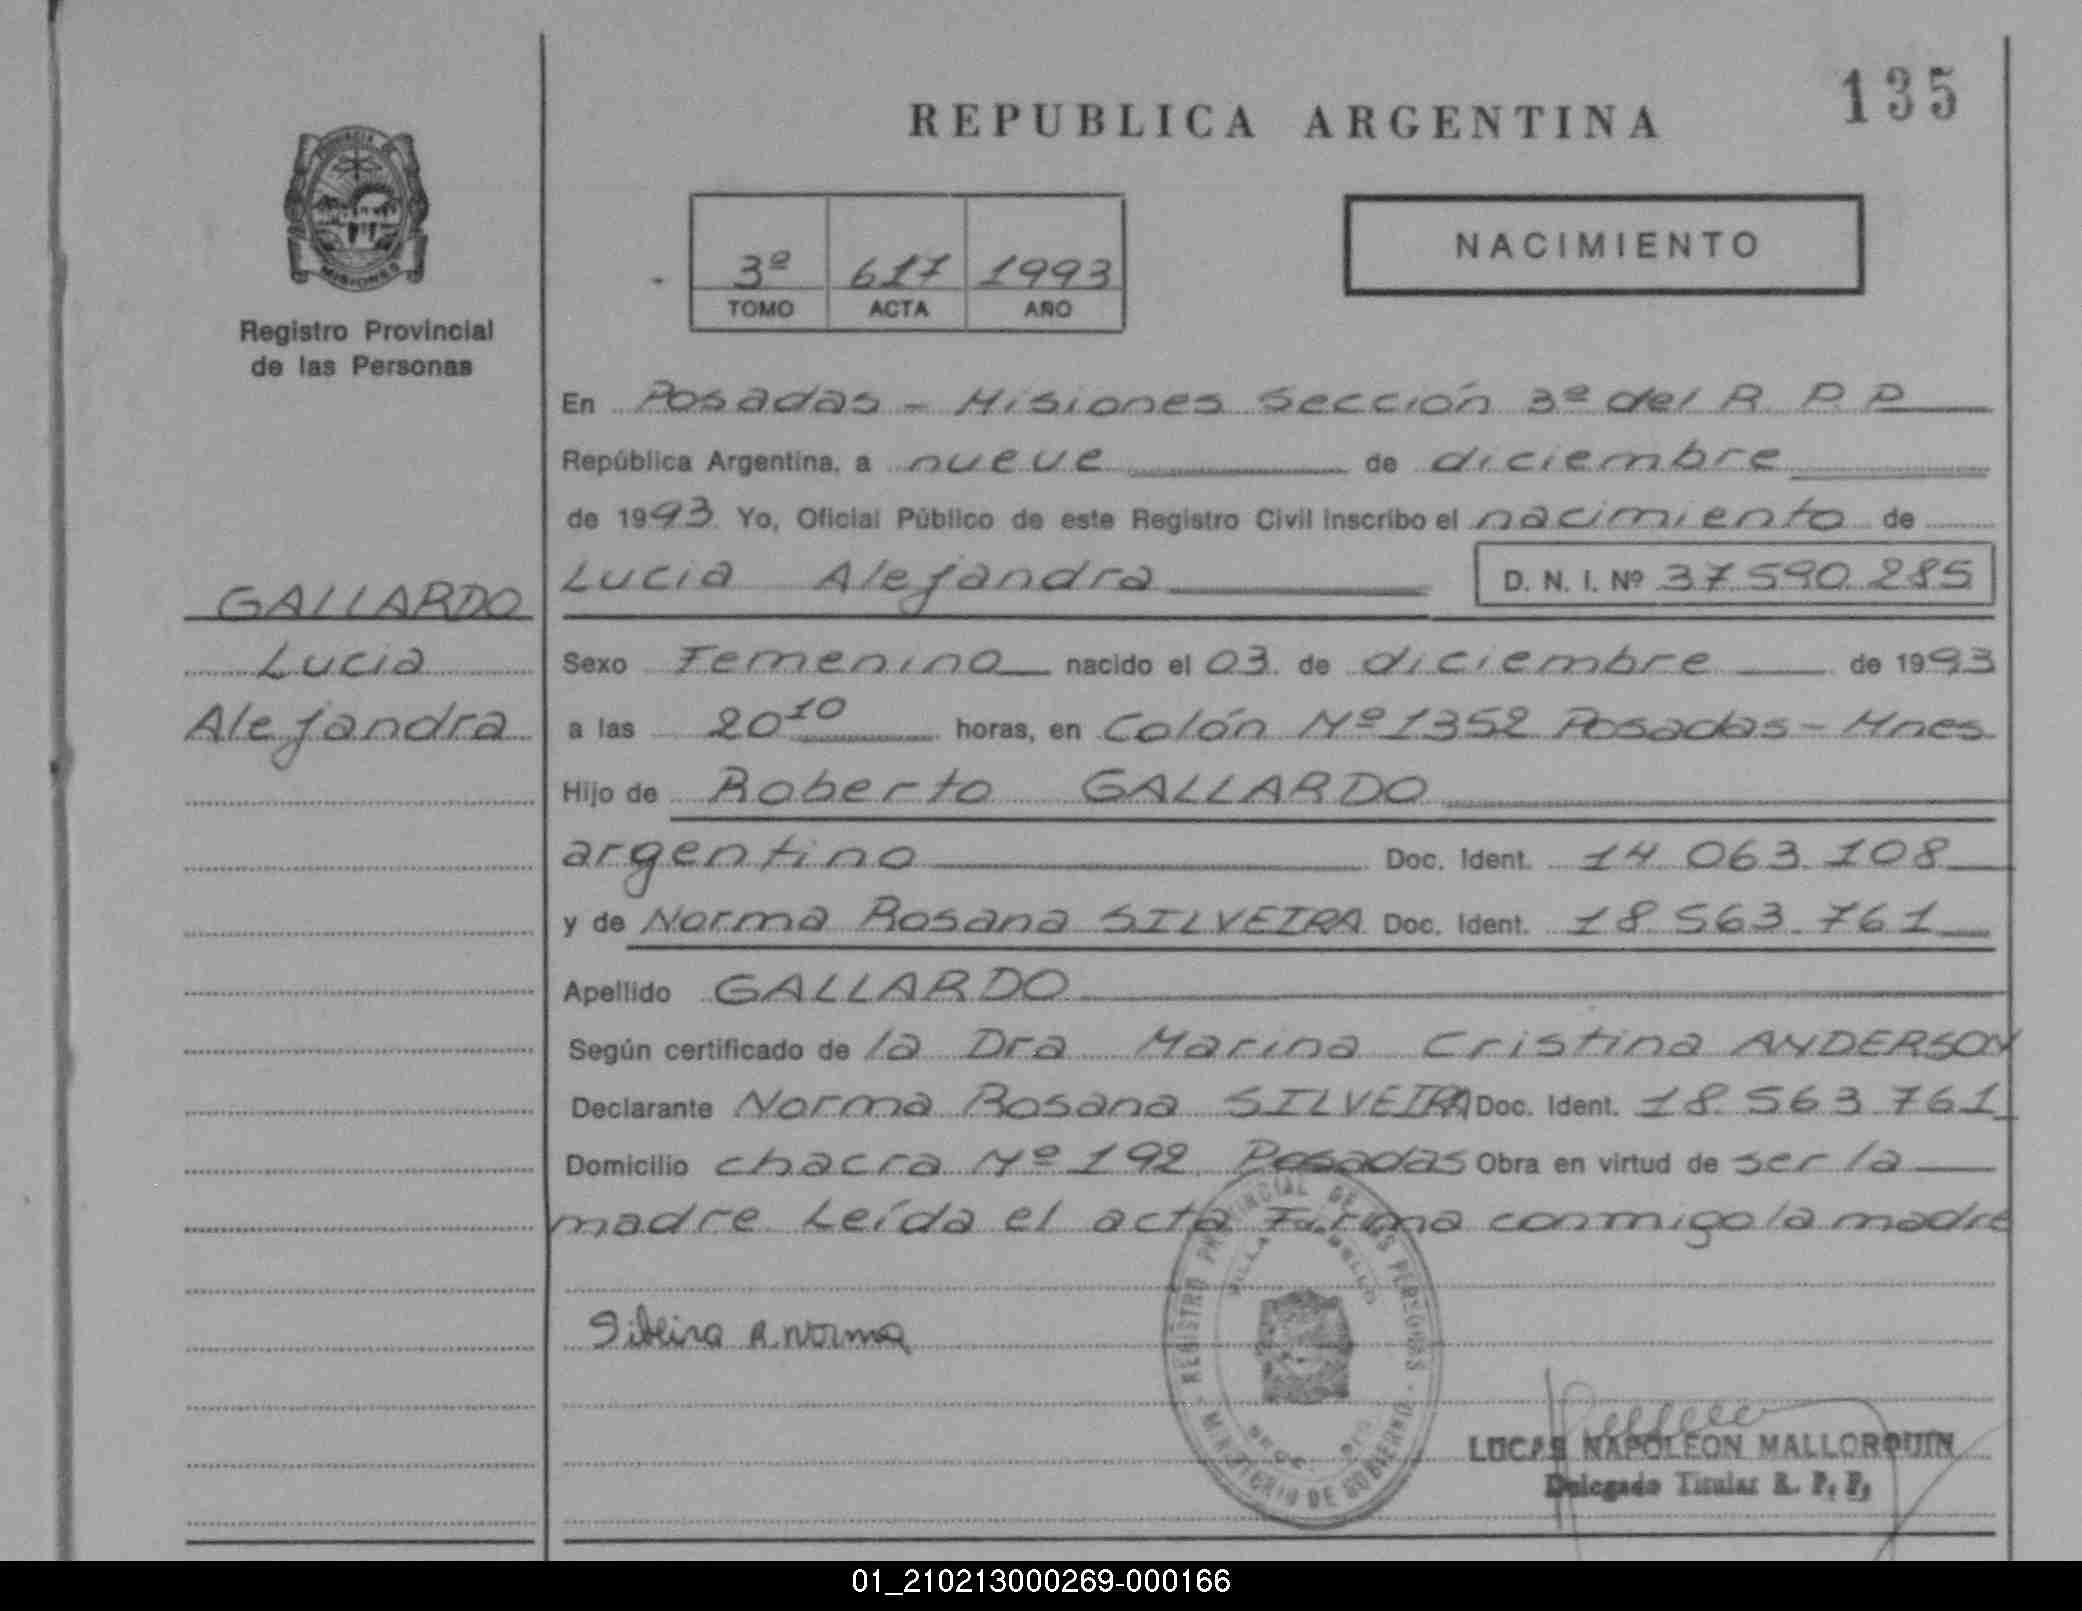 135
REPUBLICA ARGENTINA
PROVINCIA
MISIONES
Registro Provincial
de las Personas
3º 617 1993
TOMO ACTA AÑO
NACIMIENTO
En Posadas - Misiones Sección 3º del R. P. P
República Argentina, a nueve de diciembre
de 1993 Yo, Oficial Público de este Registro Civil inscribo el nacimiento de
Lucia Alejandra D. N. I. Nº 37.590.285
GALLARDO
Lucia
Alejandra
Sexo Femenino nacido el 03 de diciembre de 1993
a las 20 10 horas, en Colón Nº 1352 Posadas - Mnes
Hijo de Roberto GALLARDO
argentino Doc. Ident. 14 063.108
y de Norma Rosana SILVEIRA Doc. Ident. 18.563.761
Apellido GALLARDO
Según certificado de la Dra Marina Cristina ANDERSON
Declarante Norma Rosana SILVEIRA Doc. Ident. 18.563.761
Domicilio chacra Nº 192 Posadas Obra en virtud de ser la
madre Leída el acta Firma conmigo la madre
REGISTRO PROVINCIAL DE LAS PERSONAS
MINISTERIO DE GOBIERNO
Silveira R. Norma
LUCAS NAPOLEON MALLORQUIN
Delegado Titular R. P. P.
01_210213000269-000166